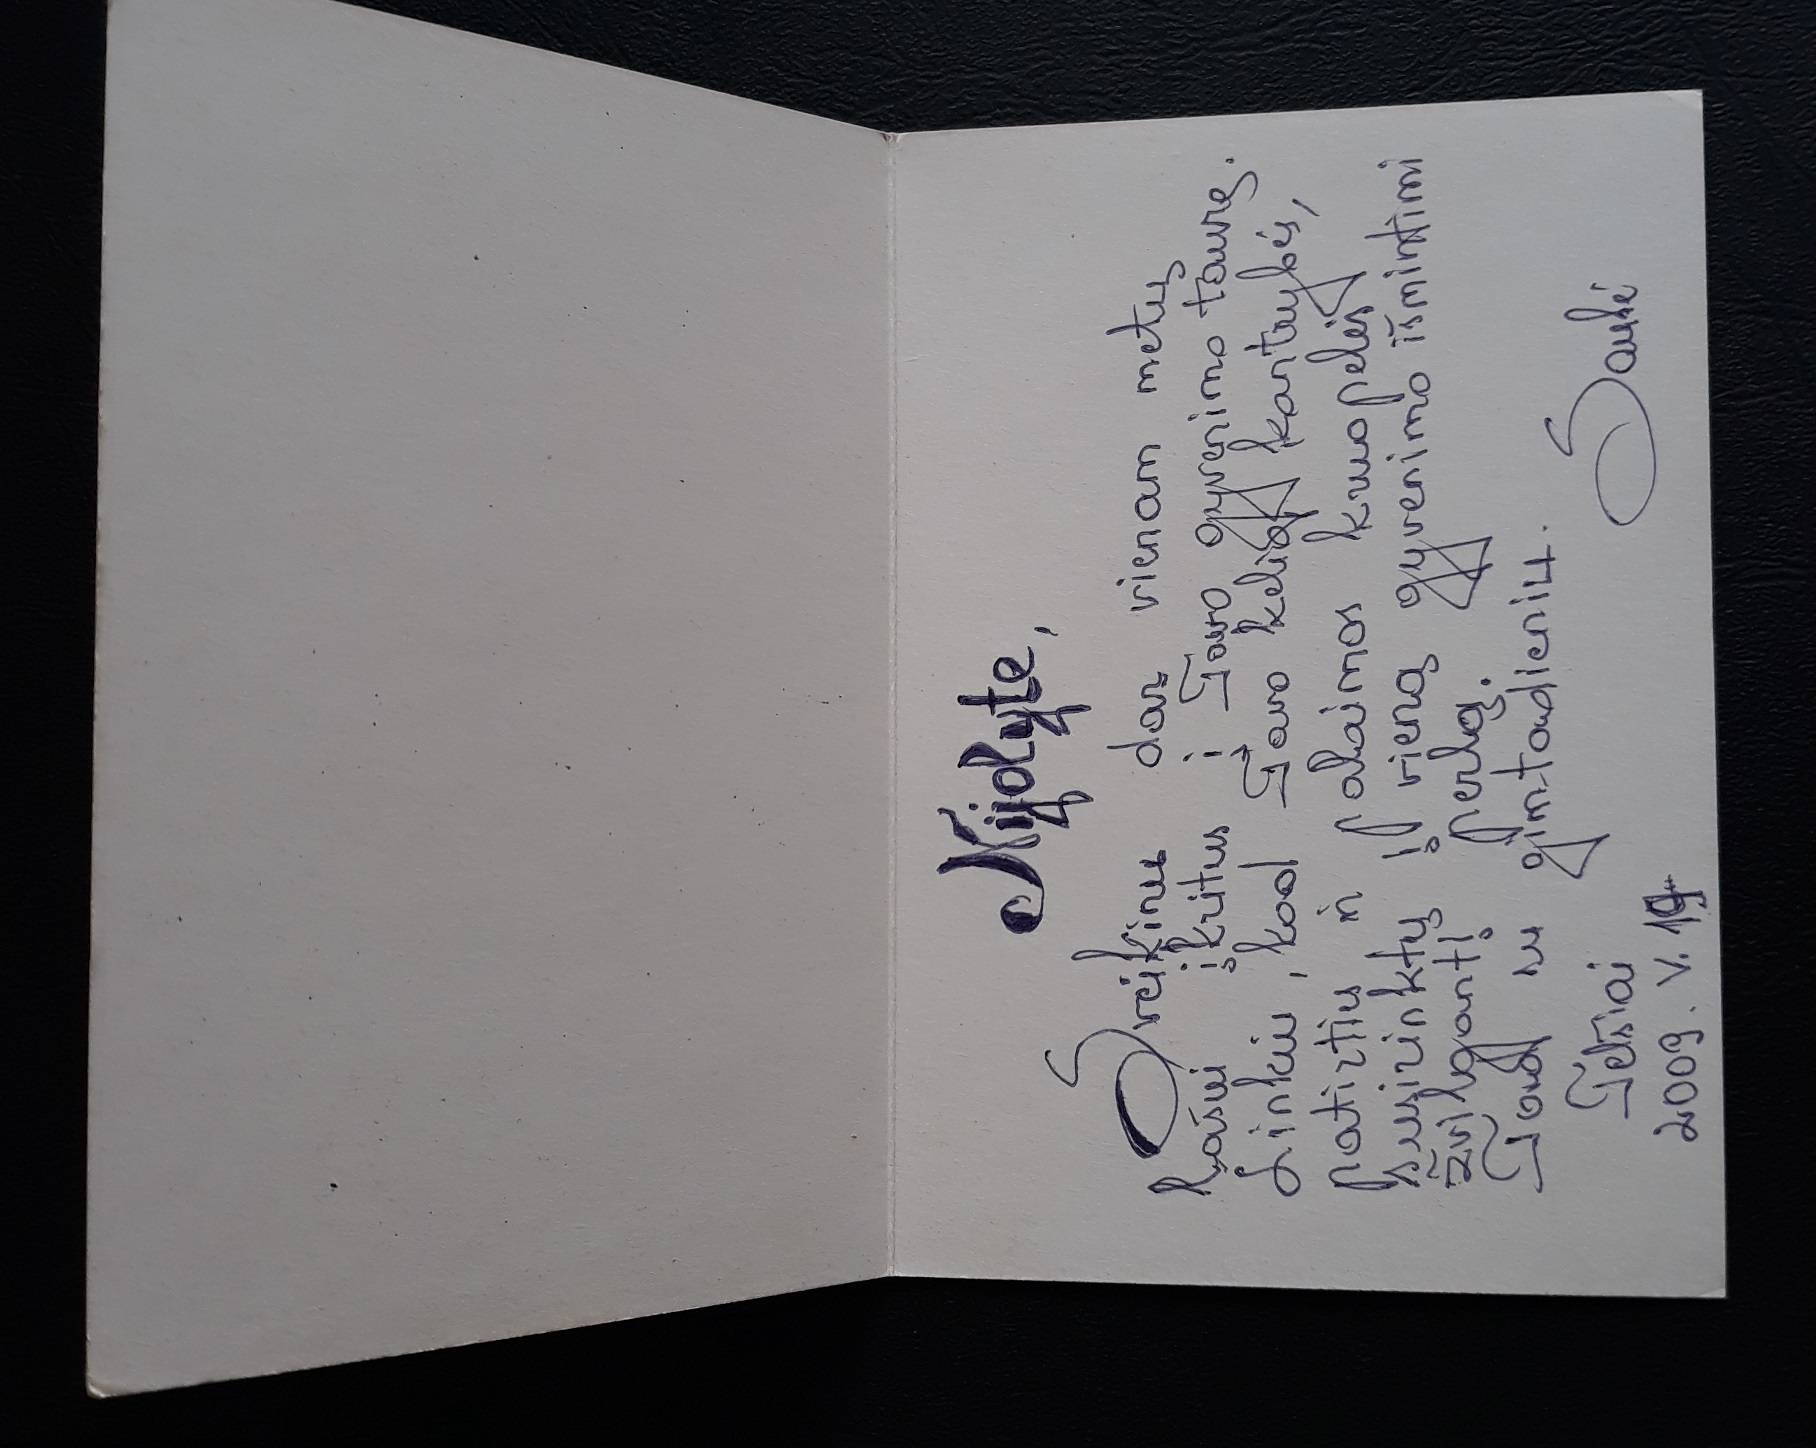 Nijolyte,
Sveikinu dar vienam metų
lašui įkritus į Tavo gyvenimo taurę.
Linkiu, kad Tavo kelią kantrybės,
patirties ir laimės kruopelės
susirinktų į vieną gyvenimo išmintimi
žvilgantį perlą.
Tad su gimtadieniu.
Telšiai
2009. V. 19
Saulė